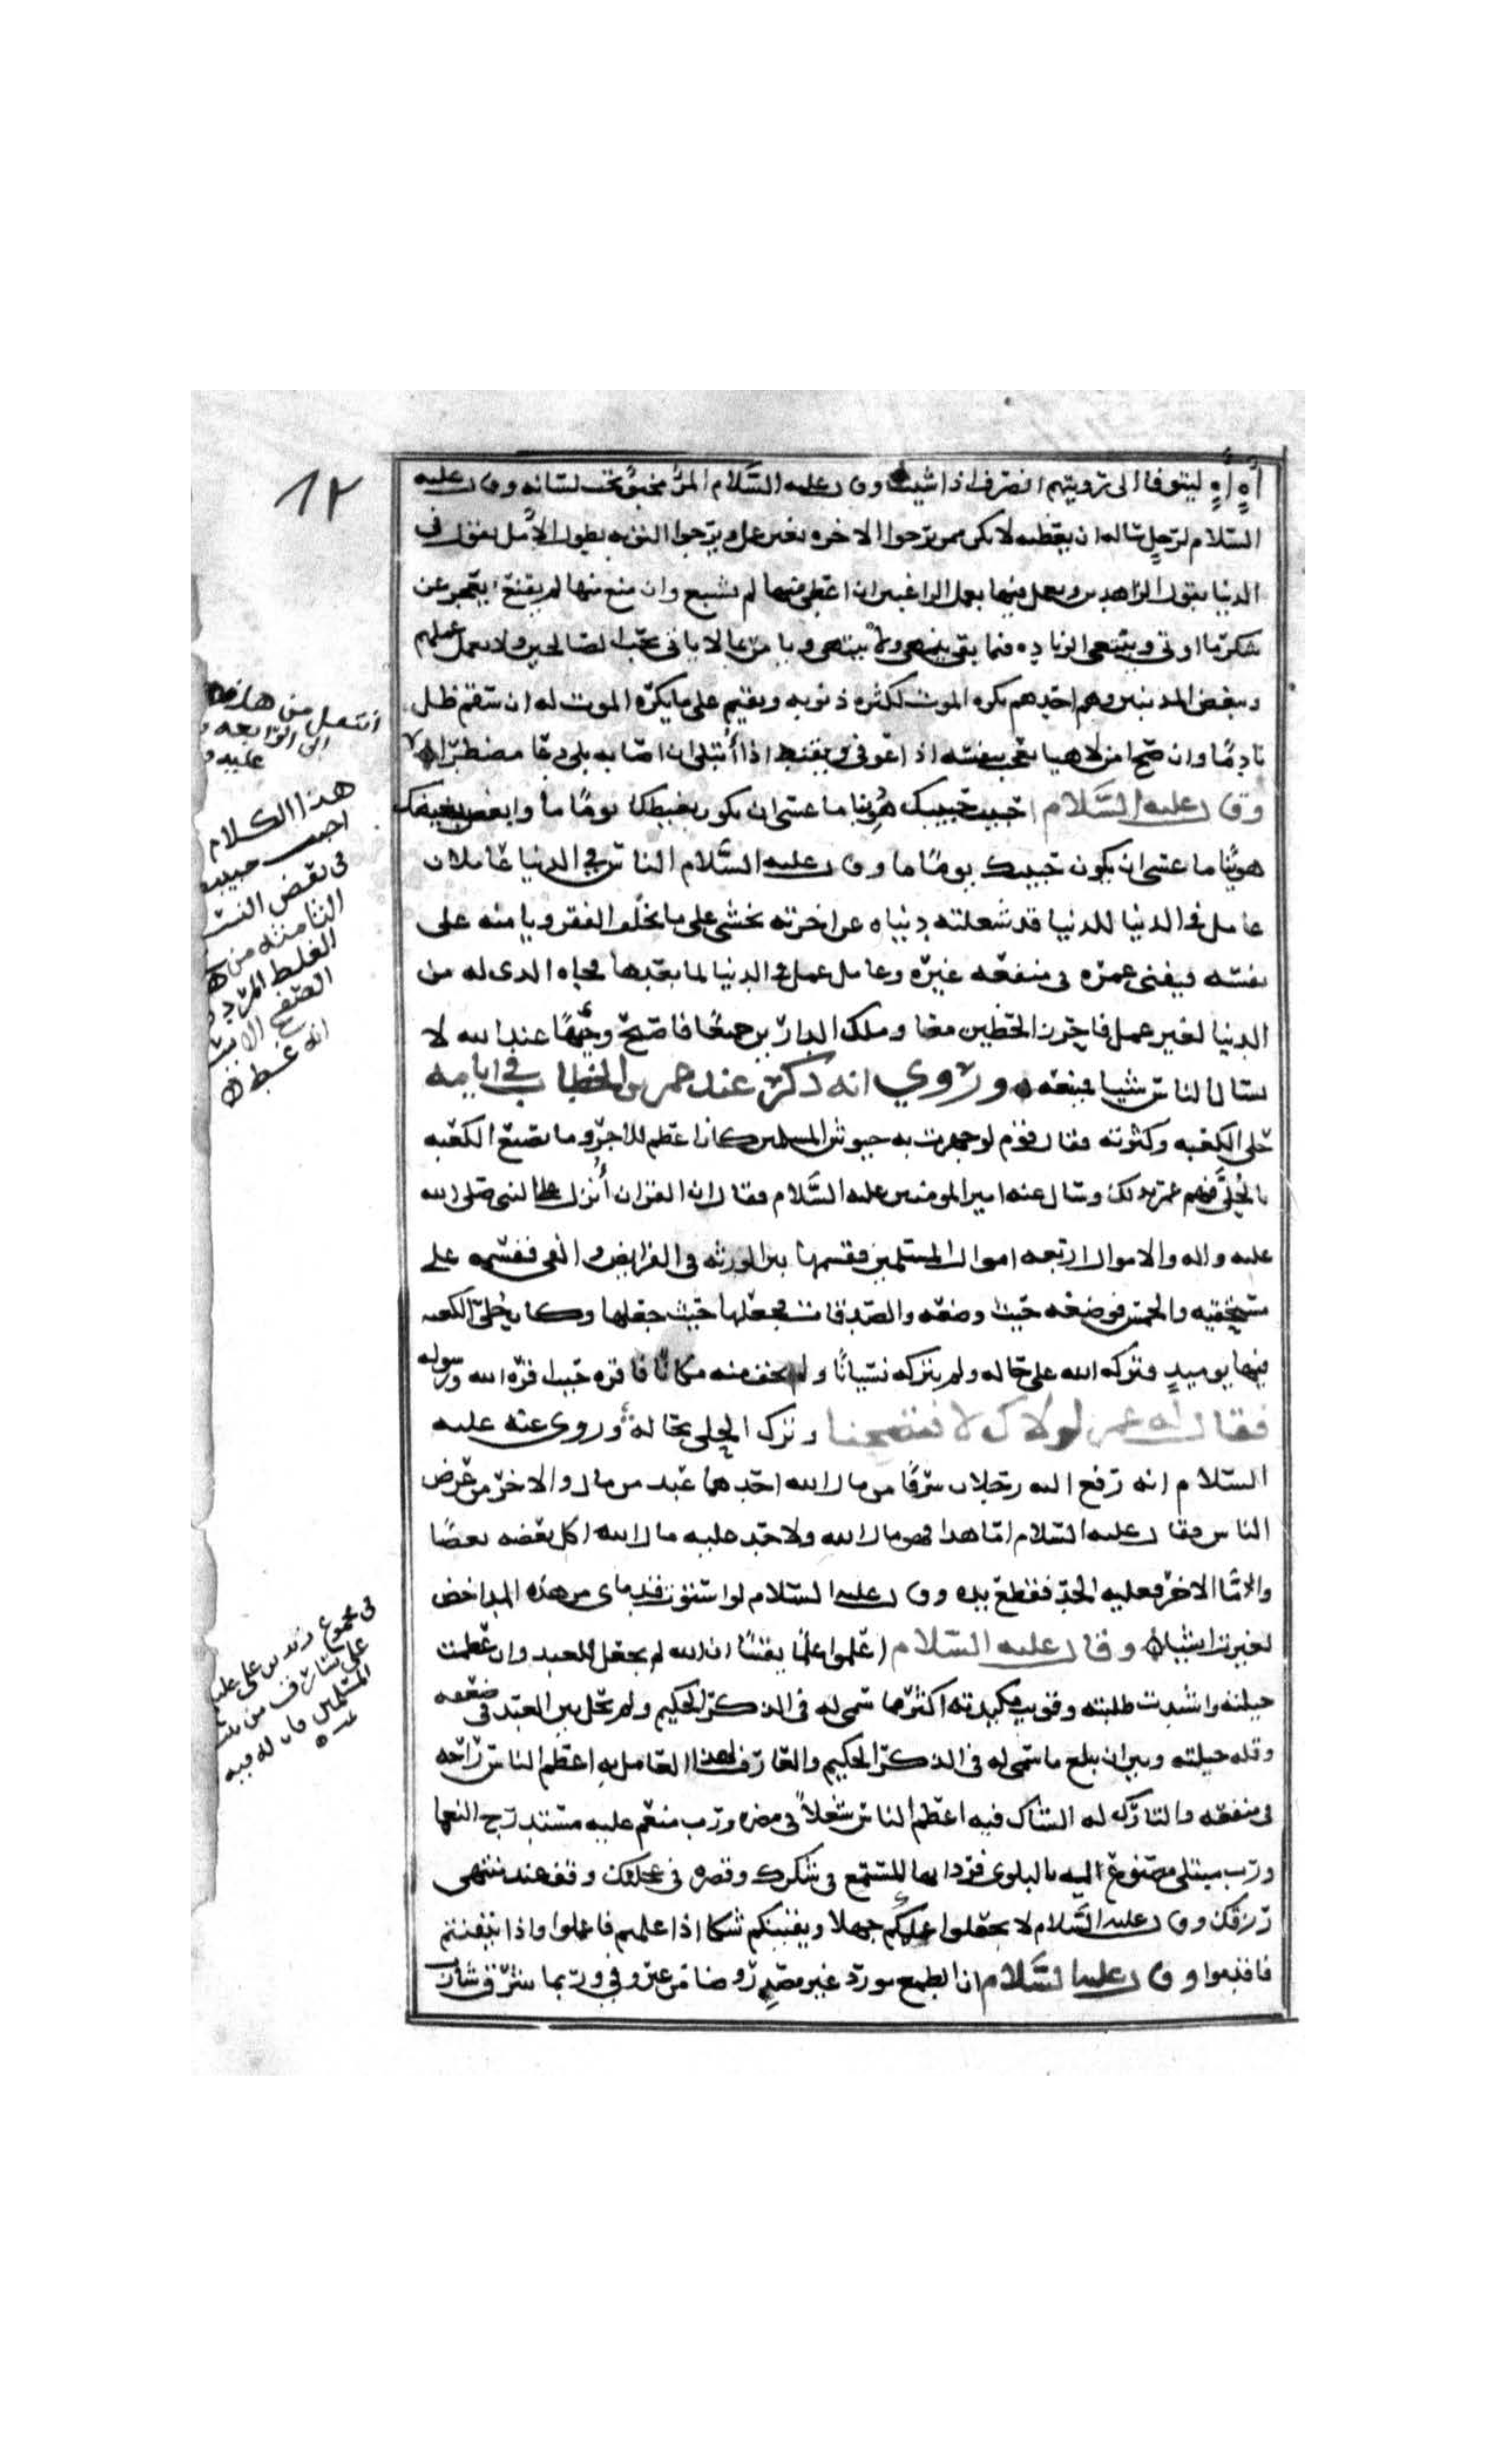 ١٢
آهٍ آهٍ ليتوقا الى رويتهم انصرف اذا شيت وقال عليه السَّلام المرُ مخبوٌ تحت لسانه وقال عليه
السّلام لرجلٍ ساله ان يعظه لا تكن ممن يرجوا الاخره بغير عمل ويرجوا التوبه بطول الأمل يقول في
الدنيا بقول الزاهدين ويعمل فيها بعمل الراغبين ان اعطي منها لم يشبع وان منع منها لم يقنع يعجز عن
شكر ما اوتي ويبتغي الزياده فيما بقي ينهى ولا ينتهي ويامر بما لا ياتي يحب الصالحين ولا يعمل عملهم
ويبغض المذنبين وهو احدهم يكره الموت لكثره ذنوبه ويقيم على ما يكره الموت له ان سقم ظل
نادمًا وان صح امن لاهيا يعجب بنفسه اذا عوفي ويقنط اذا ابتلي ان اصابه بلى دعا مضطرّا
وقال عليه السَّلام احبب حبيبك هونًا ما عسى ان يكون بغيضك يومًا ما وابغض بغيضك
هونًا ما عسى ان يكون حبيبك يومًا ما وقال عليه السَّلام الناس في الدنيا عاملان
عامل في الدنيا للدنيا قد شغلته دنياه عن اخرته يخشى على من يخلف الفقر ويامنه على
نفسه فيفني عمره في منفعه غيره وعامل عمل في الدنيا لما بعدها فجاه الذي له من
الدنيا لغير عمل فاحرز الحظين معا وملك الدارين جميعًا فاصبح وجيهًا عند الله لا
يسال الناس شيا فيمنعه وروي انه ذكر عند عمر بن الخطاب في ايامه
حلي الكعبه وكثرته فقال قوم لو جهزت به جيوش المسلمين كان اعظم للاجر وما تصنع الكعبه
بالحلي فهم عمر بذلك وسال عنه امير المومنين عليه السَّلام فقال ان القران أنزل على النبي صلى الله
عليه واله والاموال اربعه اموال المسلمين فقسمها بين الورثه في الفرايض والفي فقسمه على
مستحقيه والخمس فوضعه حيث وضعه والصدقات فجعلها حيث جعلها وكان حلي الكعبه
فيها يوميذٍ فتركه الله على حاله ولم يتركه نسيانًا ولم يخف منه مكانًا فاقره حيث اقره الله ورسوله
فقال له عمر لولاك لافتضحنا وترك الحلي بحاله وروي عنه عليه
السّلام انه رفع اليه رجلان سرقا من مال الله احدهما عبد من مال والاخر من عرض
الناس فقال عليه السّلام امّا هذا فهو مال الله ولا حد عليه مال الله اكل بعضه بعضًا
وامّا الاخر فعليه الحد فقطع يده وقال عليه السّلام لو استوت قدماي من هذه المداحض
لغيرت اشيا وقال عليه السّلام اعلموا علمًا يقينًا ان الله لم يجعل للعبد وان عظمت
حيلته واشتدت طلبته وقويت مكيدته اكثر مما سمي له في الذكر الحكيم ولم يحل بين العبد في ضعفه
وقله حيلته وبين ان يبلغ ما سمي له في الذكر الحكيم والعارف لهذا العامل به اعظم الناس راحه
في منفعه والتارك له الشاك فيه اعظم الناس شغلاً في مضره ورب منعم عليه مستدرج بالنعما
ورب مبتلى مصنوع اليه بالبلوى فزد ايها المستمع في شكرك وقصر في عجلتك وقف عند منتهى
رزقك وقال عليه السّلام لا تجعلوا علمكم جهلا ويقينكم شكا اذا علمتم فاعملوا واذا تيقنتم
فاقدموا وقال عليه السَّلام ان الطمع مورد غير مصدر وضامن غير وفي وربما شرق شارب
انتقل من هاهنا
الى الرابعه
عليه و
هذا الكلام
احبب حبيبك
في بعض النسخ
الثامنه من
الغلط
انه غبط
في مجموع زيد بن علي عليه
علي سارق من بيت
المسلمين قال له فيه